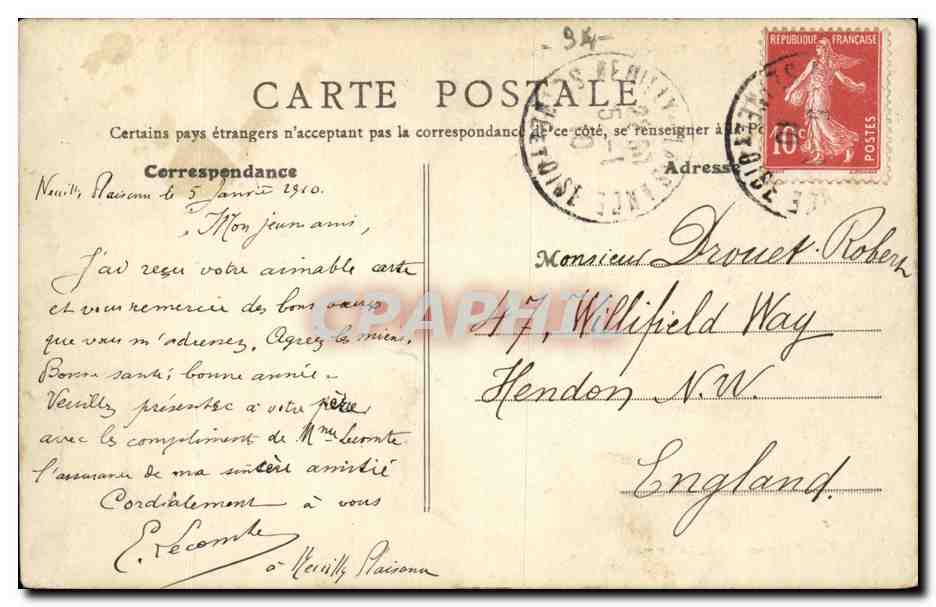 - 94 -
CARTE POSTALE
RÉPUBLIQUE FRANÇAISE
10c
POSTES
Certains pays étrangers n'acceptant pas la correspondance de ce côté, se renseigner à la Po
Correspondance
Adresse
Neuilly Plaisance le 5 Janvier 1910.
Mon jeune ami,
J'ai reçu votre aimable carte
et vous remercie des bons vœux
que vous m'adressez. Agréez les miens.
Bonne santé, bonne année.
Veuillez présenter à votre père
avec les compliments de Mme Lecomte
l'assurance de ma sincère amitié
Cordialement à vous
E. Lecomte
à Neuilly Plaisance
Monsieur Drouet Robert
47, Willifield Way
Hendon N.W.
England.
CPAPHIL